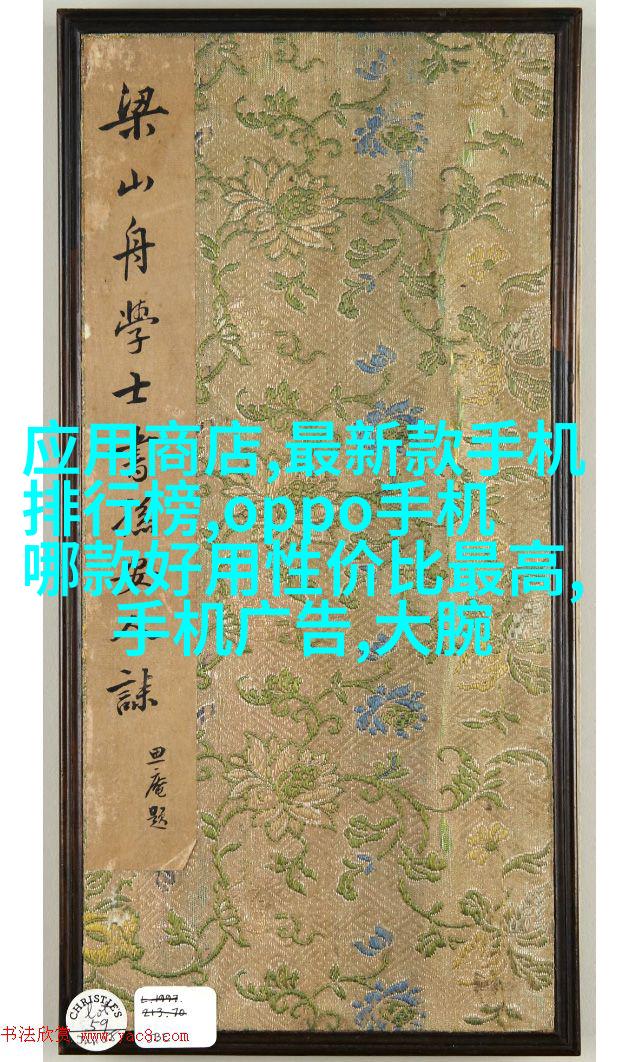 梁山舟學士書孫安人誄
思庵題
应用商店,最新款手机
排行榜,oppo手机
哪款好用性价比最高,
手机广告,大腕
CHRISTIE'S
Lot
59
L.1997.
213.70
书法欣赏 www.yac8.com